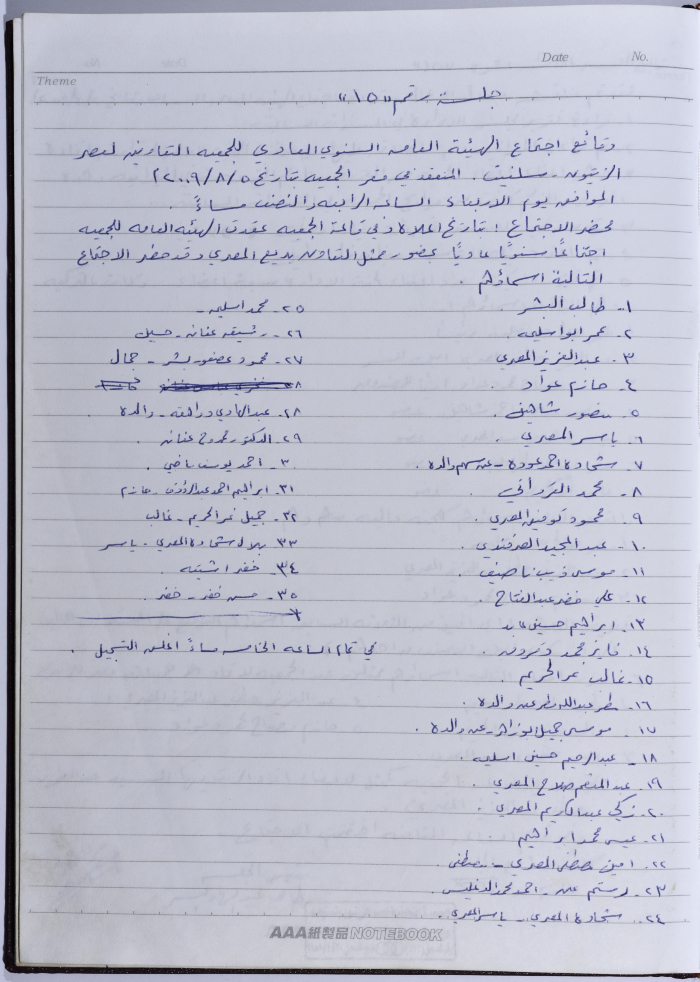 Date No.
Theme
جلسة رقم "١٥"
وقائع اجتماع الهيئة العامه السنوي العادي للجمعيه التعاونيه لعصر
الزيتون - سلفيت . المنعقد في مقر الجمعيه بتاريخ ٢٠٠٩/٨/٥
الموافق يوم الاربعاء الساعه الرابعه والنصف مساءً .
محضر الاجتماع : بتاريخ اعلاه وفي قاعة الجمعيه عقدت الهيئه العامه للجمعيه
اجتماعًا سنويًا عاديًا بحضور ممثل التعاون بديع المصري وقد حضر الاجتماع
التالية اسماؤهم .
١- طالب البشر .
٢. عمر ابو اسليمه .
٣. عبدالعزيز المصري
٤. حازم عواد
٥. منصور شاهين .
٦. ياسر المصري .
٧. شحاده احمد عوده - عن سهم والده .
٨. محمد القرداني .
٩. محمود توفيق المصري .
١٠- عبد المجيد
١١- موسى ذيب ناصيف .
١٢. علي خضر عبدالفتاح .
١٣. ابراهيم حسين عابد
١٤. فايز محمد .
١٥. غالب نمر الحريم .
١٦- مطر عبدالله مطر عن والده .
١٧. موسى جميل - عن والده .
١٨- عبد الرحيم حسين اسليمه .
١٩. عبد المنعم صلاح المصري .
٢٠. زكي عبد الكريم المصري .
٢١. عيسى محمد ابراهيم
٢٢. امين مصطفى المصري - مصطفى .
٢٣. رستم - احمد محمد .
٢٤. شحادة المصري - ياسر المصري .
٢٥. محمد اسليمه -
٢٦. رفيقه عفانه - حسين
٢٧. محمود عصفور بشر - جمال
٢٨. عبد الهادي - والده .
٢٩. الدكتور ممدوح عفانه .
٣٠. احمد يوسف ماضي .
٣١. ابراهيم احمد عبدالرؤوف - حازم
٣٢. جميل نمر الحريم - غالب
٣٣. بلال شحادة المصري - ياسر
٣٤. خضر اشتيه .
٣٥. حسن خضر - خضر .
في تمام الساعه الخامسه مساءً اغلق التسجيل .
AAA紙製品NOTEBOOK